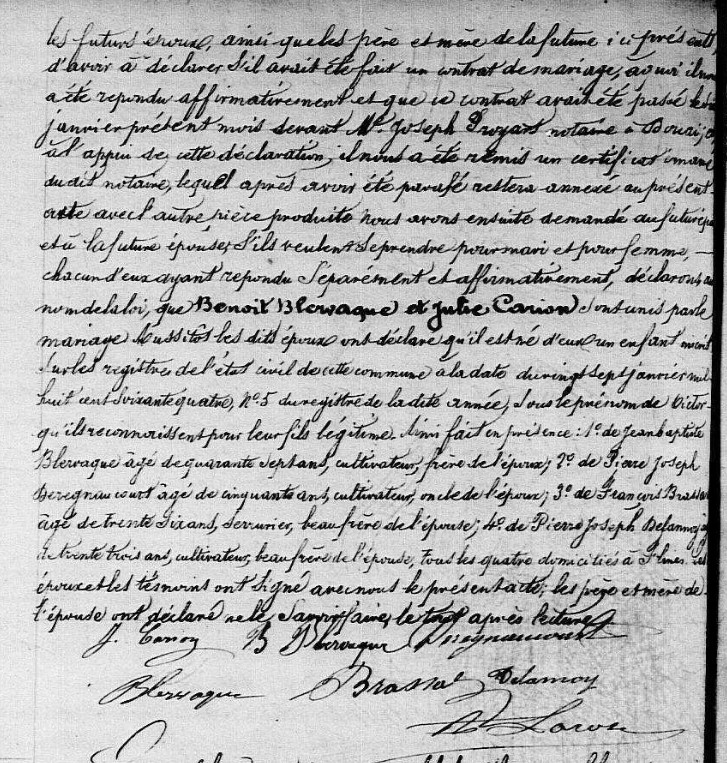 les futurs époux, ainsi que les père et mère de la future ici présents
d'avoir à déclarer s'il avait été fait un contrat de mariage, à quoi il nous
a été repondu affirmativement et que ce contrat avait été passé le
janvier présent mois devant Me. Joseph Proyart notaire à Douai,
à l'appui de cette déclaration, il nous a été remis un certificat émané
du dit notaire, lequel après avoir été parafé restera annexé au présent
acte avec l'autre pièce produite nous avons ensuite demandé au futur époux
et à la future épouse, s'ils veulent se prendre pour mari et pour femme, —
chacun d'eux ayant repondu séparément et affirmativement, déclarons au
nom de la loi, que Benoit Blervaque et Julie Carion sont unis par le
mariage Aussitot les dits époux ont déclaré qu'il est né d'eux un enfant inscrit
sur les registres de l'état civil de cette commune à la date du vingt sept janvier mil
huit cent soixante quatre, No. 5 du registre de la dite année, sous le prénom de Victor-
qu'ils reconnoissent pour leur fils légitime. Ainsi fait en présence: 1o. de Jean baptiste
Blervaque âgé de quarante sept ans, cultivateur, frère de l'époux; 2o. de Pierre Joseph
Deregnaucourt âgé de cinquante ans, cultivateur, oncle de l'époux; 3o. de François Brassart
âgé de trente six ans, serrurier, beau frère de l'épouse; 4o. de Pierre Joseph Delannoy
de trente trois ans, cultivateur, beau frère de l'épouse, tous les quatre domiciliés à Flines. Les
époux et les témoins ont signé avec nous le présent acte; les père et mère de-
l'épouse ont déclaré ne le savoir faire, le tout après lecture
J. Carion B Blervaque Dregnaucourt
Blervaque Brassart Delannoy